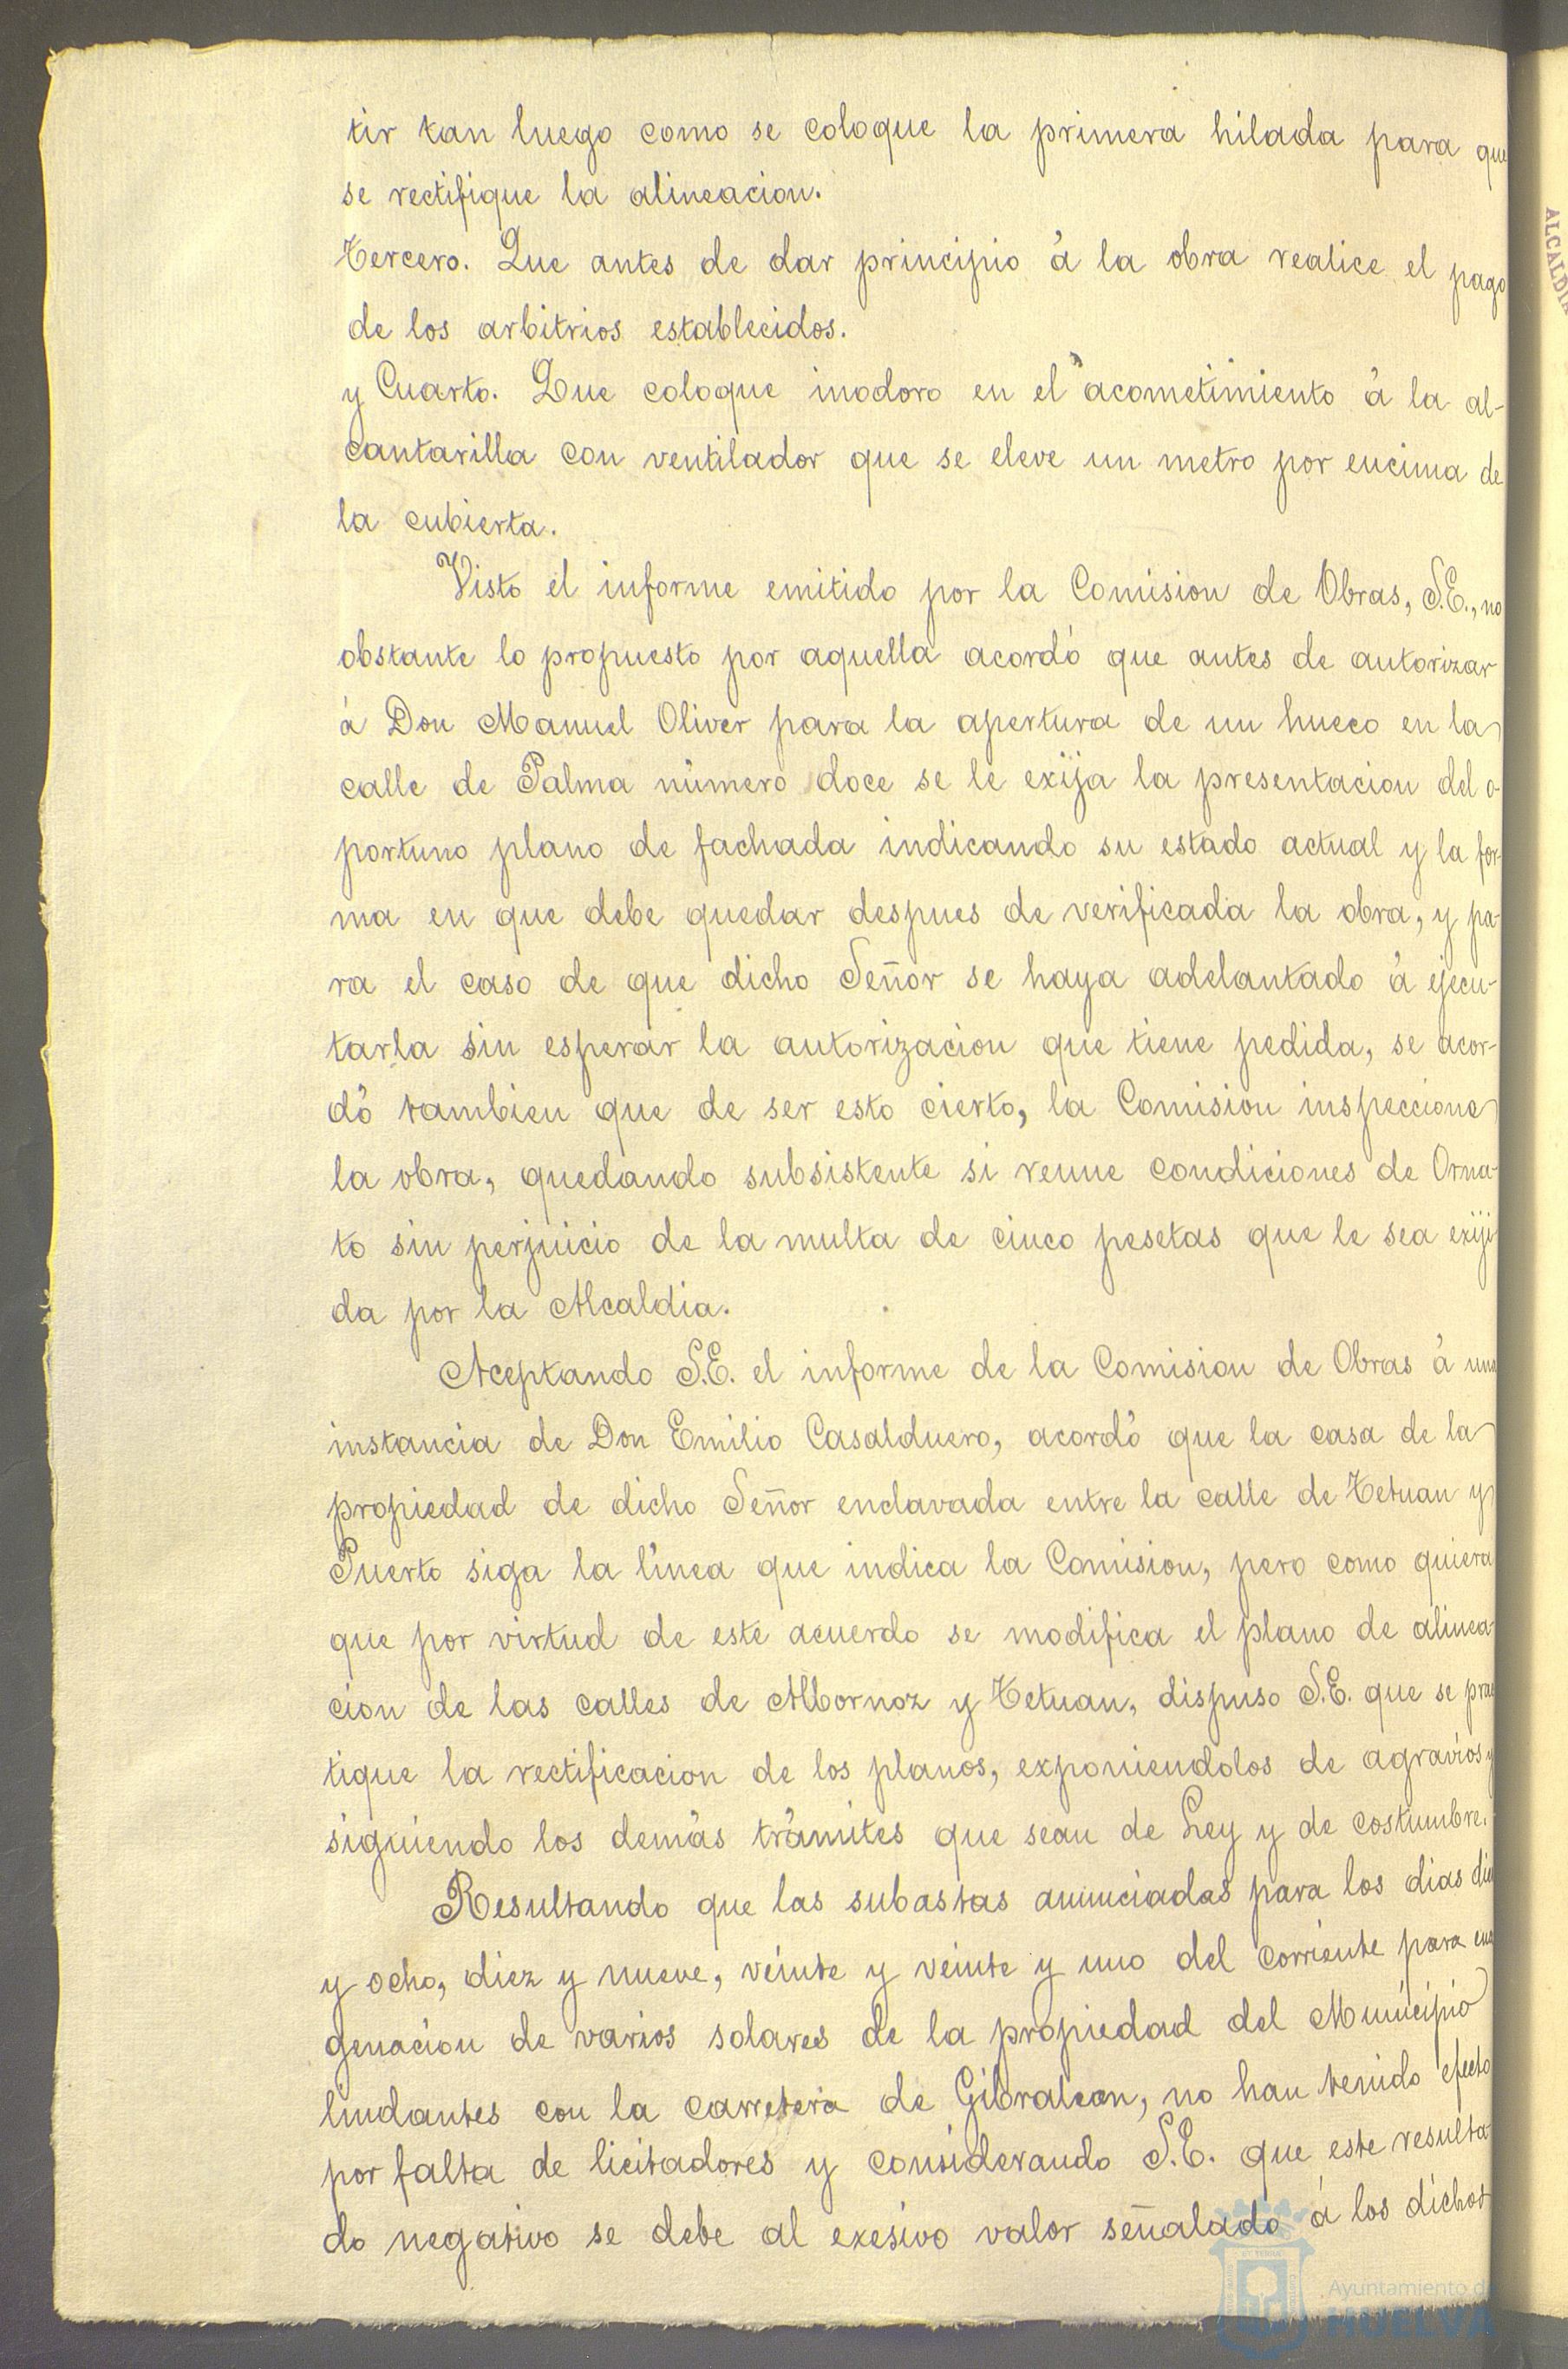 tir tan luego como se coloque la primera hilada para que
se rectifique la alineacion.
Tercero. Que antes de dar principio á la obra realice el pago
de los arbitrios establecidos.
y Cuarto. Que coloque inodoro en el acometimiento á la al-
cantarilla con ventilador que se eleve un metro por encima de
la cubierta.
Visto el informe emitido por la Comision de Obras, S.E., no
obstante lo propuesto por aquella acordó que antes de autorizar
á Don Manuel Oliver para la apertura de un hueco en la
calle de Palma número doce se le exija la presentacion del o-
portuno plano de fachada indicando su estado actual y la for-
ma en que debe quedar despues de verificada la obra, y pa-
ra el caso de que dicho Señor se haya adelantado á ejecu-
tarla sin esperar la autorizacion que tiene pedida, se acor-
dó tambien que de ser esto cierto, la Comision inspeccione
la obra, quedando subsistente si reune condiciones de Orna-
to sin perjuicio de la multa de cinco pesetas que le sea exiji-
da por la Alcaldia.
Aceptando S.E. el informe de la Comision de Obras á una
instancia de Don Emilio Casalduero, acordó que la casa de la
propiedad de dicho Señor enclavada entre la calle de Tetuan y
Puerto siga la línea que indica la Comision, pero como quiera
que por virtud de este acuerdo se modifica el plano de alinea-
cion de las calles de Albornoz y Tetuan, dispuso S.E. que se prac
tique la rectificacion de los planos, exponiendolos de agravios y
siguiendo los demás trámites que sean de Ley y de costumbre.
Resultando que las subastas anunciadas para los dias diez
y ocho, diez y nueve, veinte y veinte y uno del corriente para ena
genacion de varios solares de la propiedad del Municipio
lindantes con la carretera de Gibraleon, no han tenido efecto
por falta de licitadores y considerando S.E. que este resulta-
do negativo se debe al exesivo valor señalado á los dichos
ALCALDIA
Ayuntamiento de
HUELVA